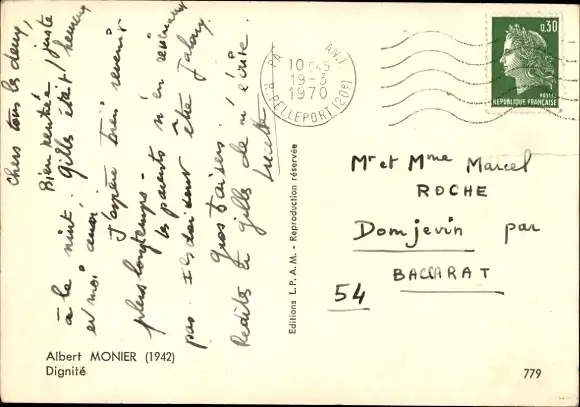 Chers tous les deux,
Bien rentrée juste
à la nuit, Gilles était heureux
et moi aussi
J'espère bien revenir
plus longtemps -
les parents n'en reviennent
pas. Ils doivent être jaloux
Gros baisers.
Redites à Gilles de m'écrire.
Lucette
PA ANT
10 H45
19-3
1970
R. PELLEPORT (20e)
0,30
POSTES
REPUBLIQUE FRANÇAISE
Mr et Mme Marcel
ROCHE
Domjevin par
BACCARAT
54
Editions L.P.A.M. - Reproduction réservée
Albert MONIER (1942)
Dignité
779